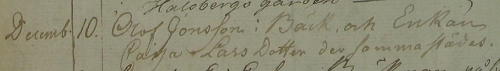 Halsbergs gården
Decemb. 10. Olof Jonsson i Bäck, och Enkan
Lars Dotter der sammastädes.